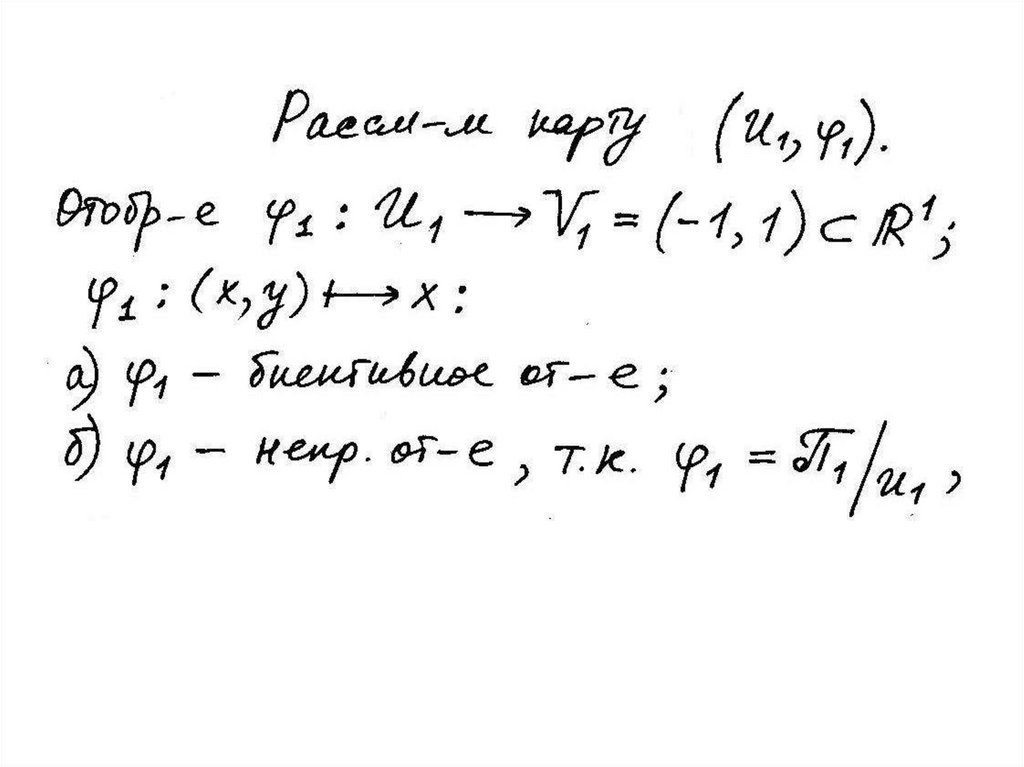 Рассм-м карту (U₁, φ₁).
Отобр-е φ₁ : U₁ → V₁ = (-1, 1) ⊂ ℝ¹;
φ₁ : (x, y) ↦ x :
а) φ₁ – биективное от-е ;
б) φ₁ – непр. от-е , т.к. φ₁ = П₁/U₁ ,